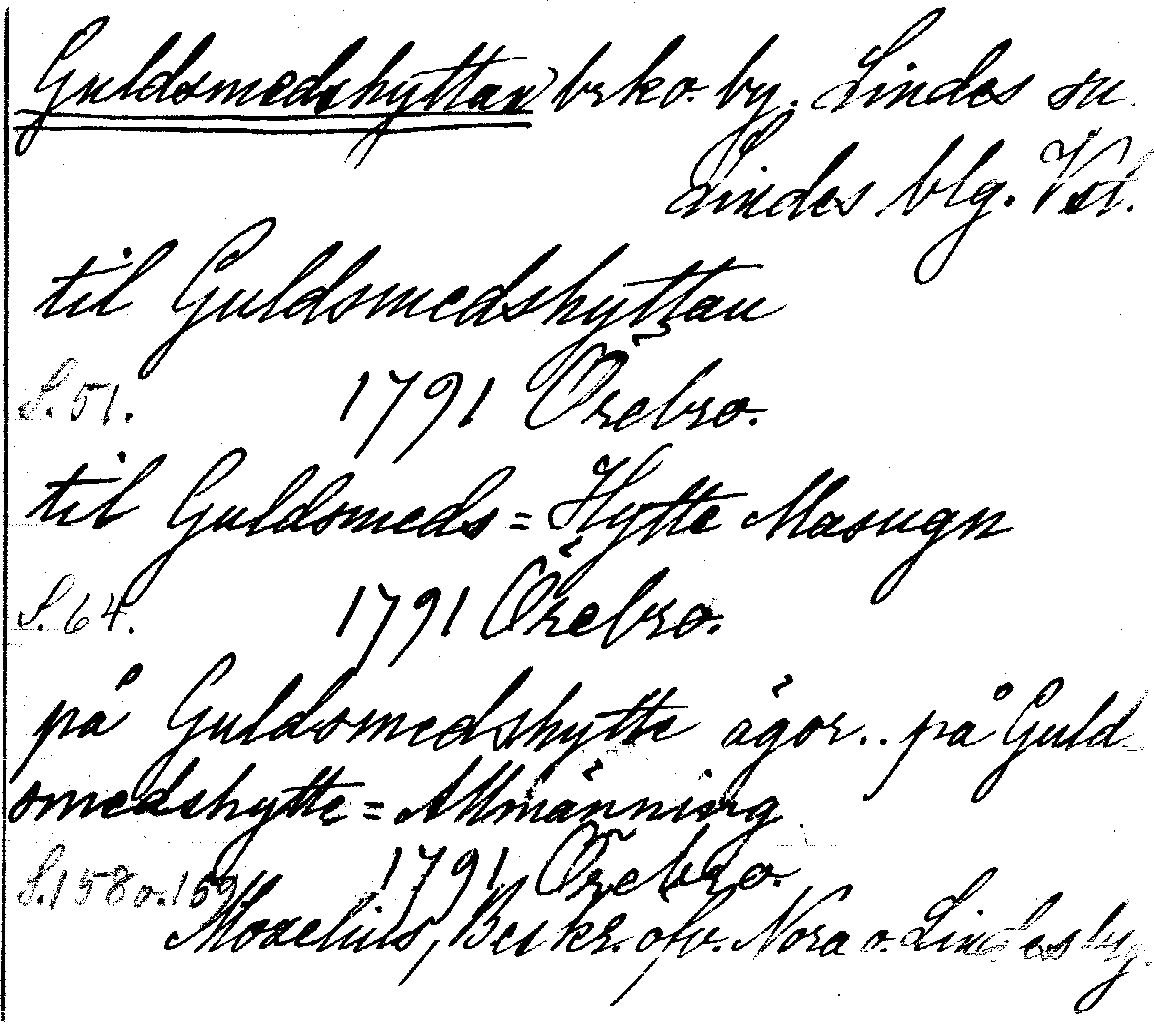 Guldsmedshyttan brko. by. Lindes sn
Lindes blg. Vstl.
til Guldsmedshyttan
S. 51. 1791 Örebro.
til Guldsmeds=Hytte Masugn
S. 64. 1791 Örebro.
på Guldsmedshytte ägor.. på Guld-
smedshytte=Allmänning
S. 158 o. 159 1791 Örebro.
Moxelius, Beskr. öfv. Nora o. Lindesbg.